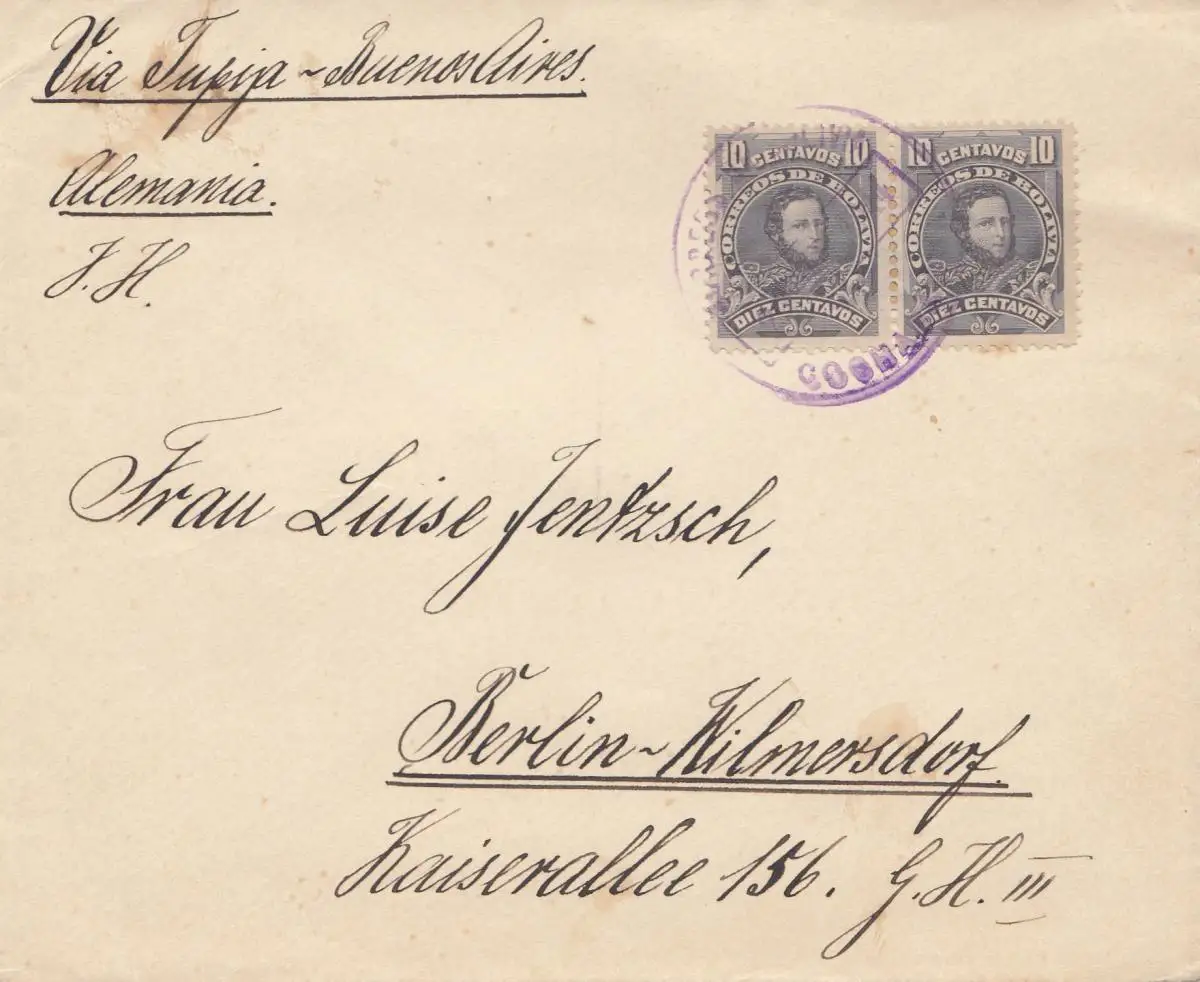 Via Tupiza ~ Buenos Aires.
Alemania.
J. H.
10 CENTAVOS 10
CORREOS DE BOLIVIA
DIEZ CENTAVOS
10 CENTAVOS 10
CORREOS DE BOLIVIA
DIEZ CENTAVOS
Frau Luise Jentzsch,
Berlin ~ Wilmersdorf.
Kaiserallee 156. G. H. III